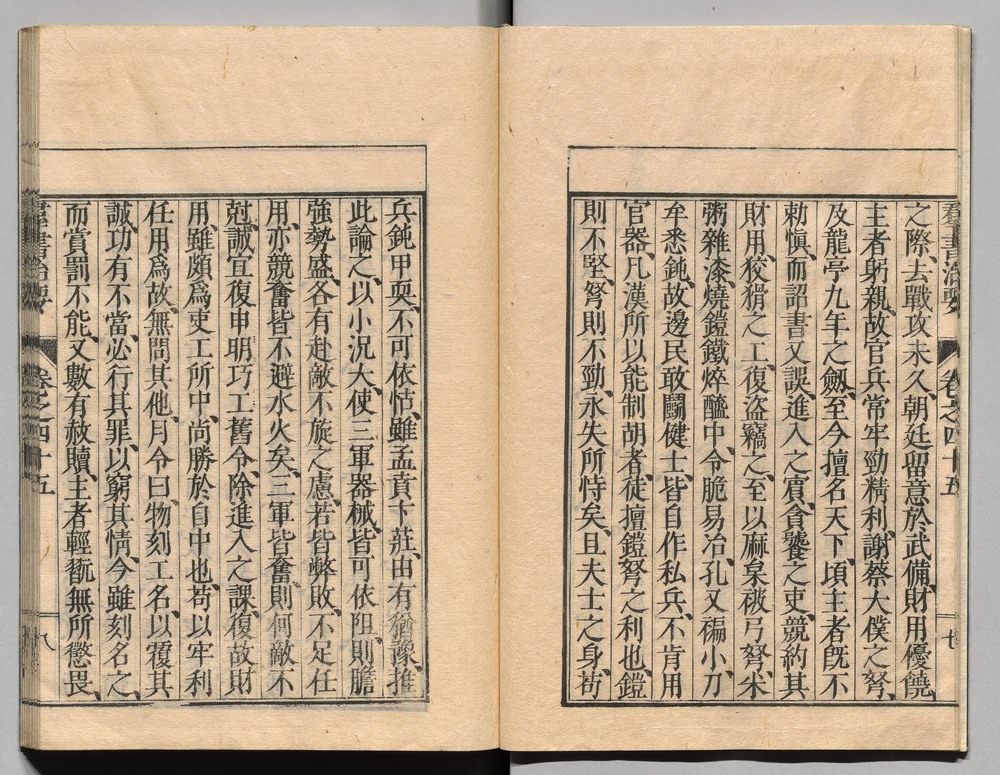 羣書治要 卷之四十五 七
之際、去戰攻未久、朝廷留意於武備、財用優饒、
主者躬親、故官兵常牢勁精利、謝蔡大僕之弩、
及龍亭九年之劔、至今擅名天下、頃主者既不
勅愼、而詔書又誤進入之賓、貪饕之吏、競約其
財用、狡猾之工、復盜竊之、至以麻枲被弓弩、米
粥雜漆、燒鎧鐵焠醯中、令脆易冶、孔又褊小、刀
牟悉鈍、故邊民敢鬭健士、皆自作私兵、不肯用
官器、凡漢所以能制胡者、徒擅鎧弩之利也、鎧
則不堅、弩則不勁、永失所恃矣、且夫士之身、苟
兵鈍甲耎、不可依怙、雖孟賁卞莊、由有猶豫、推
此論之、以小況大、使三軍器械、皆可依阻、則膽
強勢盛、各有赴敵不旋之慮、若皆弊敗、不足任
用、亦競奮皆不避水火矣、三軍皆奮、則何敵不
尅、誠宜復申明巧工舊令、除進入之課、復故財
用、雖頗爲吏工所中、尚勝於自中也、苟以牢利
任用爲故、無問其他、月令曰、物刻工名、以覆其
誠、功有不當、必行其罪、以窮其情、今雖刻名之、
而賞罰不能、又數有赦贖、主者輕翫、無所懲畏、
羣書治要 卷之四十五 八